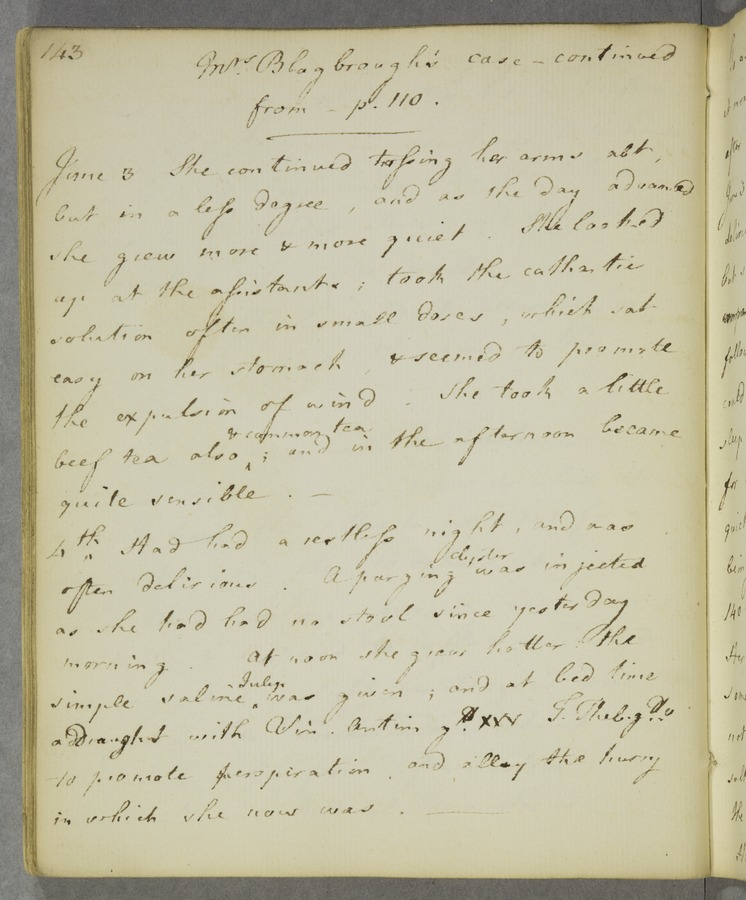 143
Mrs. Blagbrough's case - continued
from - p. 110.
June 3 She continued tossing her arms abt,
but in a less degree, and as the day advanced
she grew more & more quiet. She looked
up at the assistants; took the cathartic
solution often in small doses, which sat
easy on her stomach, & seemed to promote
the expulsion of wind. She took a little
& common tea
beef tea also ^; and in the afternoon became
quite sensible. -
4th Had had a restless night, and was
often delirious. A purging clyster was injected
as she had had no stool since yesterday
morning. At noon she grew hotter: the
simple saline Julep ^ was given; and at bed time
a draught with Vin. Antim gtt XXV T. Theb. gtt v
to promote perspiration, and allay the hurry
in which she now was. -